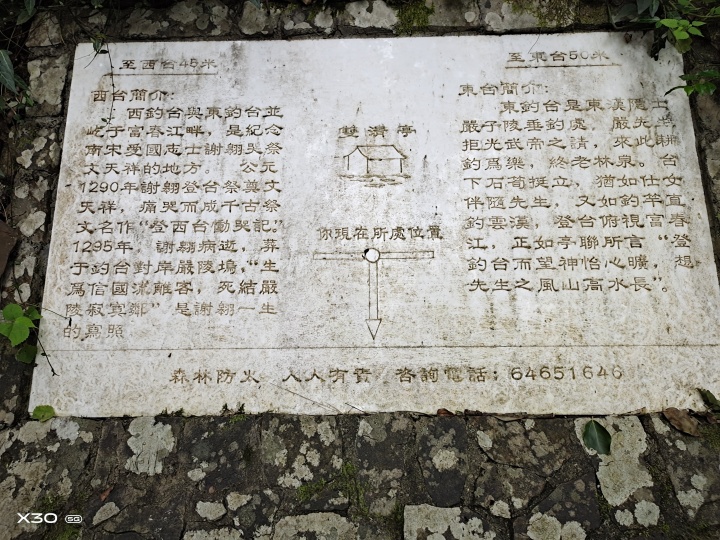 至西台45米
西台簡介：
西釣台與東釣台並
屹于富春江畔，是紀念
南宋愛國志士謝翱哭祭
文天祥的地方。公元
1290年謝翱登台祭奠文
天祥，痛哭而成千古祭
文名作“登西台慟哭記。”
1295年，謝翱病逝，葬
于釣台對岸嚴陵塢，“生
爲信國流離客，死結嚴
陵寂寞鄰”是謝翱一生
的寫照
雙清亭
你現在所處位置
至東台50米
東台簡介：
東釣台是東漢隱士
嚴子陵垂釣處，嚴先生
拒光武帝之請，來此耕
釣爲樂，終老林泉。台
下石筍挺立，猶如仕女
伴隨先生，又如釣竿直
釣雲漢，登台俯視富春
江，正如亭聯所言“登
釣台而望神怡心曠，想
先生之風山高水長”。
森林防火 人人有責 咨詢電話：64651646
X30 5G